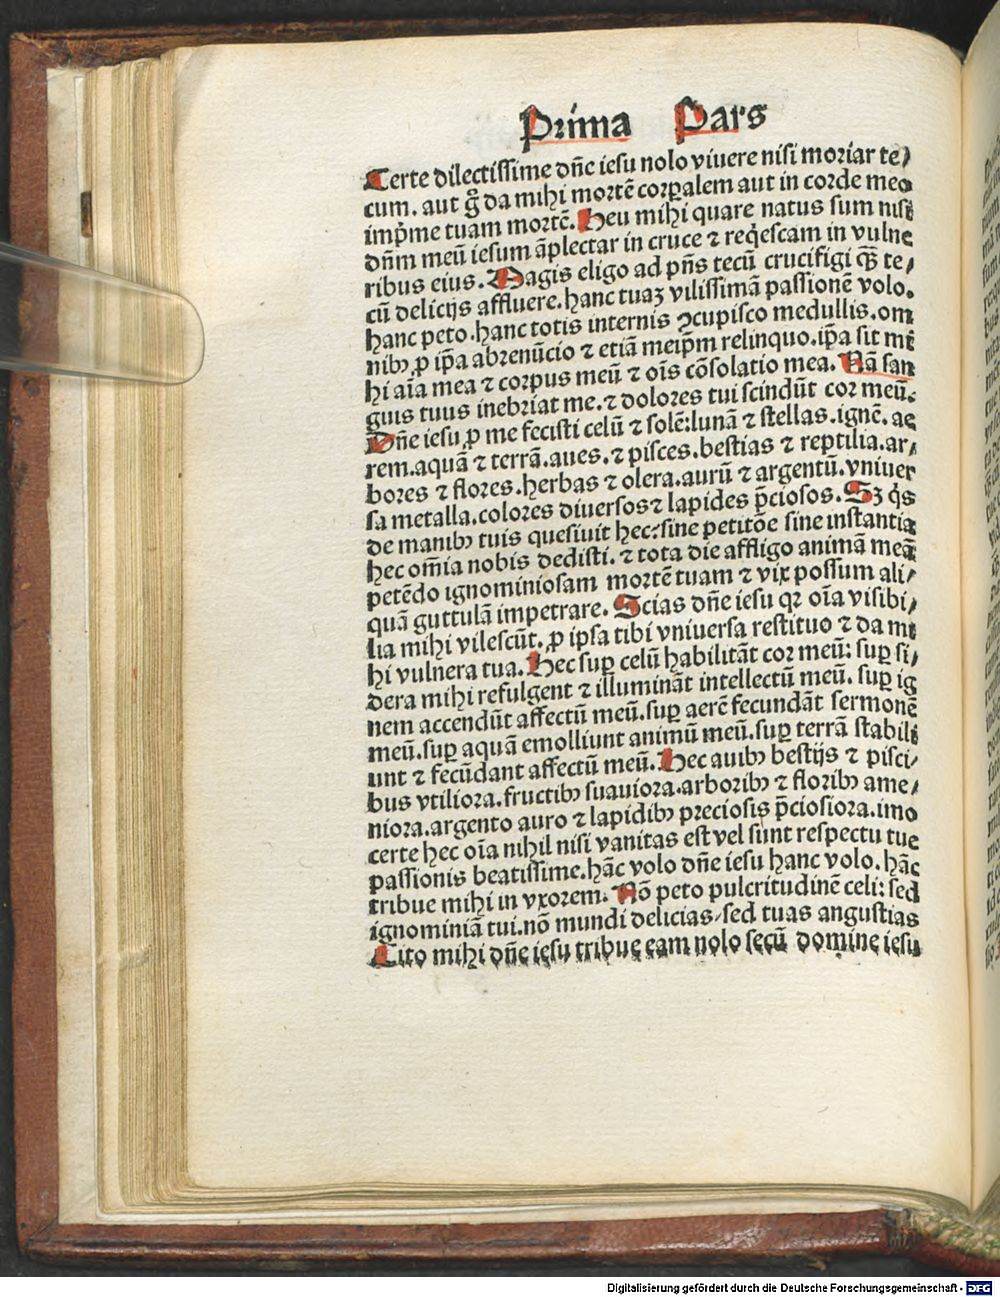 Prima Pars
Certe dilectissime dñe iesu nolo viuere nisi moriar te/
cum. aut g̊ da mihi mortē corꝑalem aut in corde meo
imp̄me tuam mortē. Heu mihi quare natus sum nisi
dñm meū iesum āplectar in cruce ⁊ req̇escam in vulne
ribus eius. Magis eligo ad p̄ns tecū crucifigi q̄ꝫ te/
cū delicijs affluere. hanc tuaꝫ vilissimā passionē volo.
hanc peto. hanc totis internis ꝯcupisco medullis. om
nibꝰ ꝓ ip̄a abrenūcio ⁊ etiā meip̄m relinquo. ip̄a sit mi
hi aīa mea ⁊ corpus meū ⁊ oīs cōsolatio mea. Nā san
guis tuus inebriat me. ⁊ dolores tui scindūt cor meū.
Dñe iesu ꝓ me fecisti celū ⁊ solē: lunā ⁊ stellas. ignē. ae
rem. aquā ⁊ terrā. aues. ⁊ pisces. bestias ⁊ reptilia. ar/
bores ⁊ flores. herbas ⁊ olera. aurū ⁊ argentū. vniuer
sa metalla. colores diuersos ⁊ lapides p̄ciosos. Sꝫ q̇s
de manibꝰ tuis quesiuit hec: sine petitōe sine instantia
hec om̄ia nobis dedisti. ⁊ tota die affligo animā meā
petēdo ignominiosam mortē tuam ⁊ vix possum ali/
quā guttulā impetrare. Scias dñe iesu qꝛ oīa visibi/
lia mihi vilescūt. ꝓ ipsa tibi vniuersa restituo ⁊ da mi
hi vulnera tua. Hec suꝑ celū habilitāt cor meū: suꝑ si/
dera mihi refulgent ⁊ illumināt intellectū meū. suꝑ ig
nem accendūt affectū meū. suꝑ aerē fecundāt sermonē
meū. suꝑ aquā emolliunt animū meū. suꝑ terrā stabili
unt ⁊ fecūdant affectū meū. Hec auibꝰ bestijs ⁊ pisci/
bus vtiliora. fructibꝰ suauiora. arboribꝰ ⁊ floribꝰ ame/
niora. argento auro ⁊ lapidibꝰ preciosis p̄ciosiora. imo
certe hec oīa nihil nisi vanitas est vel sunt respectu tue
passionis beatissime. hāc volo dñe iesu hanc volo. hāc
tribue mihi in vxorem. Nō peto pulcritudinē celi: sed
ignominiā tui. nō mundi delicias/sed tuas angustias
Cito mihi dñe iesu tribue eam nolo secū domine iesu
Digitalisierung gefördert durch die Deutsche Forschungsgemeinschaft - DFG